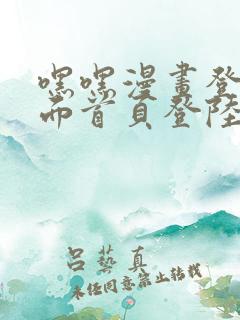 嘿嘿漫畫登
而首頁登陸
呂藝真
未经同意禁止转载